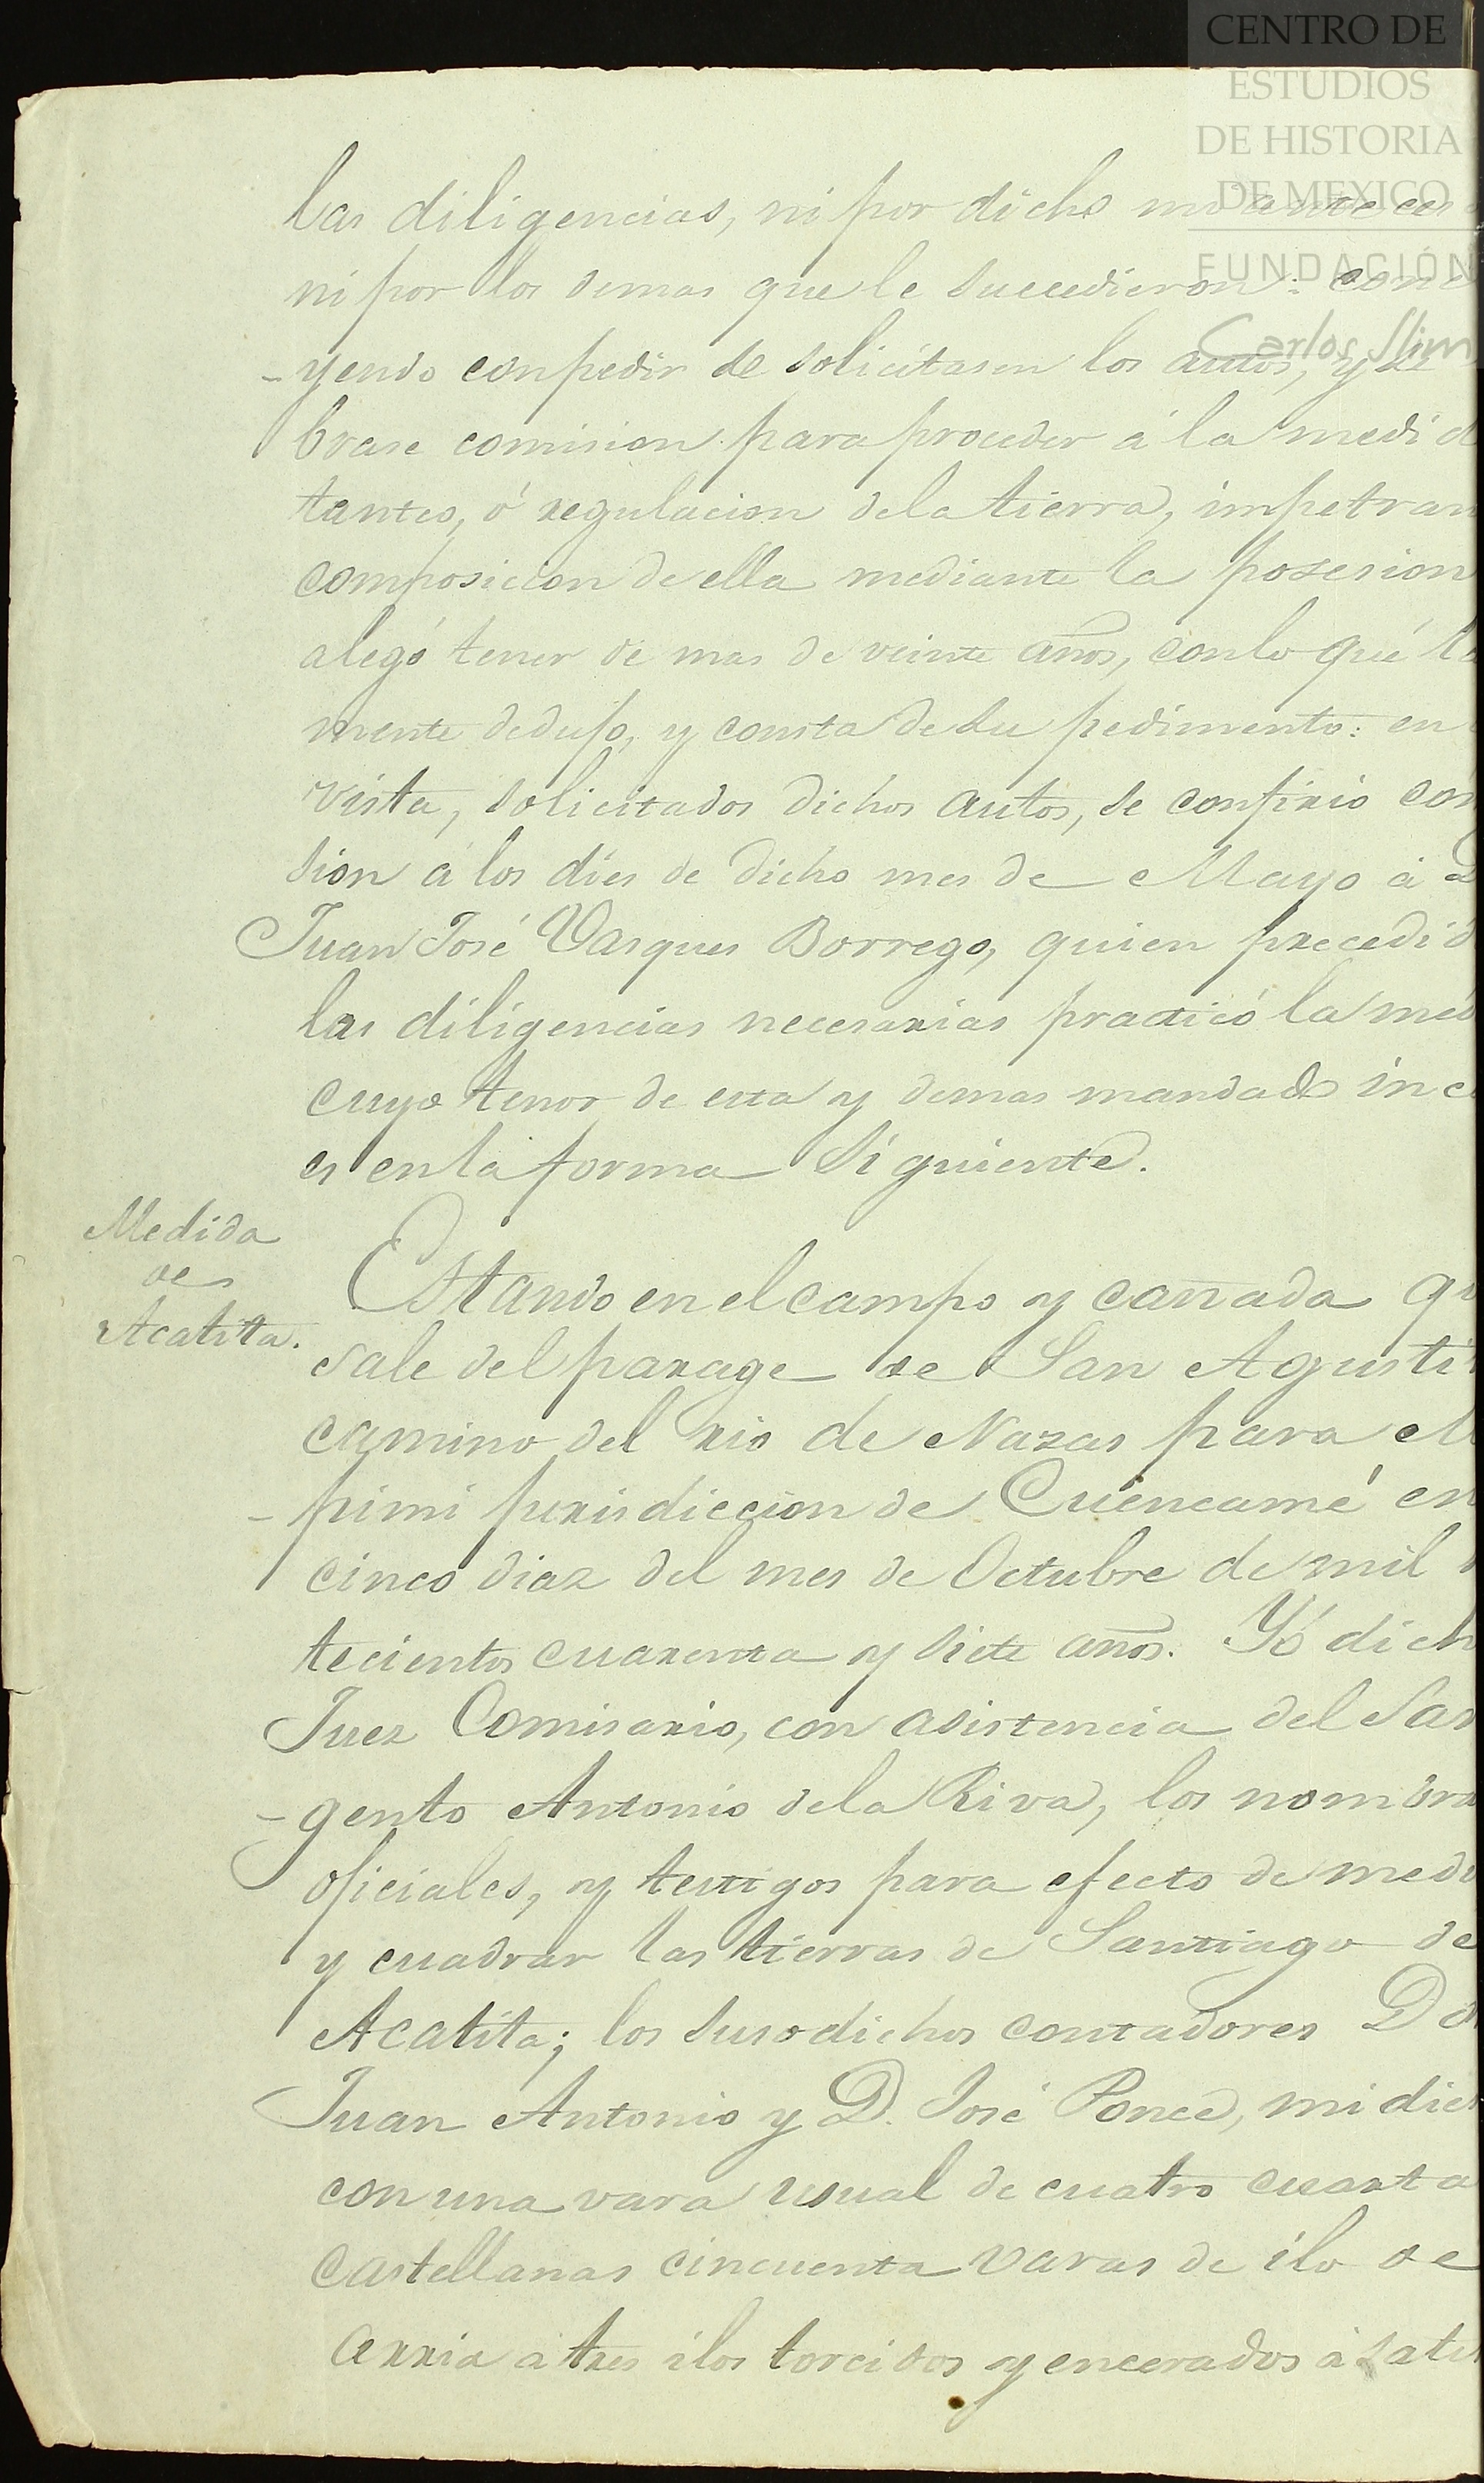 CENTRO DE
ESTUDIOS
DE HISTORIA
DE MEXICO
FUNDACIÓN
Carlos Slim
las diligencias, ni por dicho mi anteces
ni por los demas que le succedieron: conc
-yendo con pedir se solicitasen los autos, y se
brase comision para proceder á la medid
tantes, ó regulacion dela tierra, impetran
composicion de ella mediante la posesion
alegó tener de mas de veinte años, con lo qué
mente dedujo, y consta de su pedimento: en
vista, solicitados dichos autos, se confirio com
sion á los dies de dicho mes de Mayo á D
Juan José Vasques Borrego, quien precedid
las diligencias necesarias practicó la med
cuyo tenor de esta y demas mandado inc
es en la forma Siguiente.
Medida
de
Acatita.
Estando en el campo y cañada qu
sale del parage de San Agustin
camino del rio de Nazas para M
-pimi jurisdiccion de Cuencamé en
cinco diaz del mes de Octubre de mil s
tecientos cuarenta y siete años. Yó dich
Juez Comisario, con asistencia del Sar
-gento Antonio dela Riva, los nombra
oficiales, y testigos para efecto de medi
y cuadrar las tierras de Santiago de
Acatita; los susodichos contadores Do
Juan Antonio y D. José Ponce, midier
con una vara usual de cuatro cuarta
castellanas cincuenta varas de ilo de
arria á tres ilos torcidos y encerados á satis